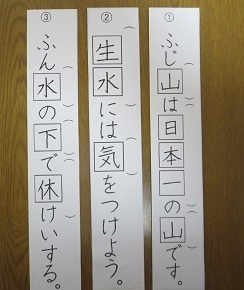 ①ふじ山は日本一の山です。
②生水には気をつけよう。
③ふん水の下で休けいする。